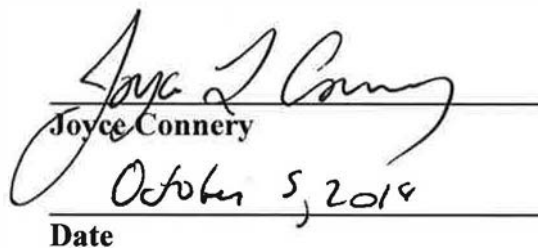 Joyce L Connery
Joyce Connery
October 5, 2018
Date